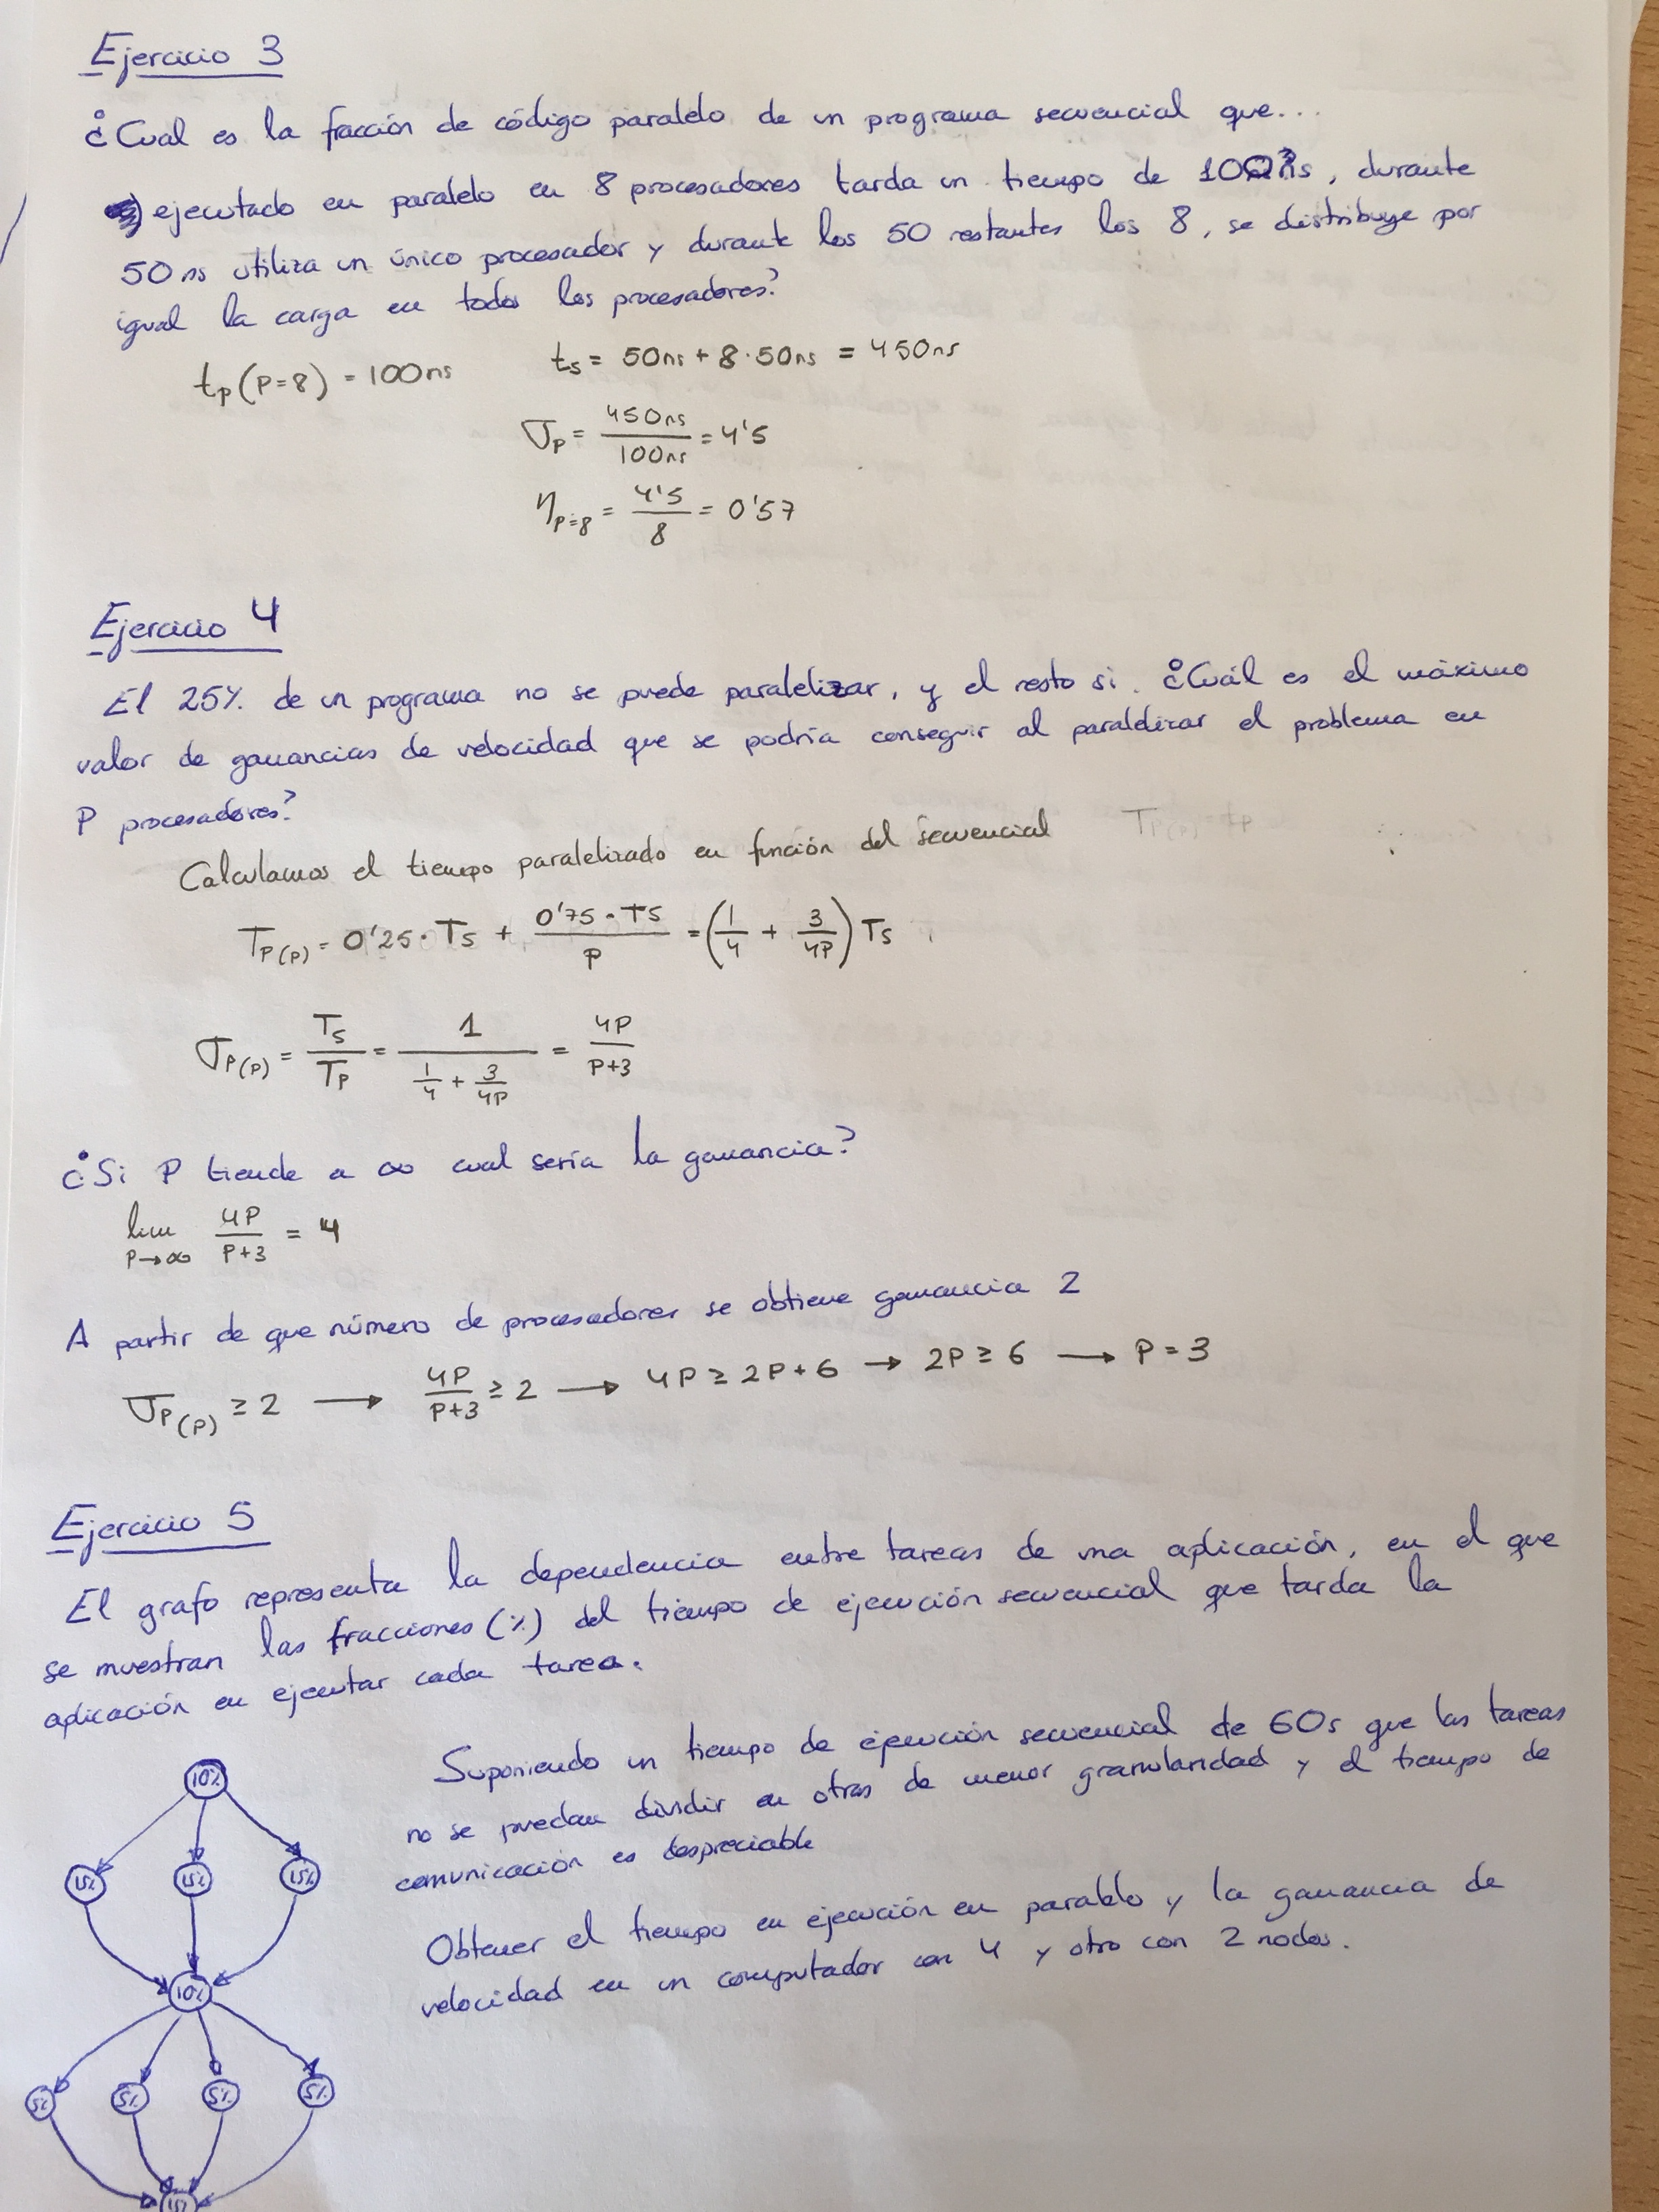 Ejercicio 3
¿Cual es la fracción de código paralelo de un programa secuencial que...
ejecutado en paralelo en 8 procesadores tarda un tiempo de 100ns, durante
50ns utiliza un único procesador y durante los 50 restantes los 8, se distribuye por
igual la carga en todos los procesadores?
tp(P=8) = 100ns    ts = 50ns + 8·50ns = 450ns
σp = 450ns/100ns = 4'5
ηp=8 = 4'5/8 = 0'57
Ejercicio 4
El 25% de un programa no se puede paralelizar, y el resto si. ¿Cuál es el máximo
valor de ganancias de velocidad que se podría conseguir al paralelizar el problema en
P procesadores?
Calculamos el tiempo paralelizado en función del secuencial    Tp(p) = tp
Tp(p) = 0'25·Ts + 0'75·Ts/P = (1/4 + 3/4P) Ts
σp(p) = Ts/Tp = 1/(1/4 + 3/4P) = 4P/P+3
¿Si P tiende a ∞ cual sería la ganancia?
lim P→∞ 4P/P+3 = 4
A partir de que número de procesadores se obtiene ganancia 2
σp(p) ≥ 2 → 4P/P+3 ≥ 2 → 4P ≥ 2P+6 → 2P ≥ 6 → P = 3
Ejercicio 5
El grafo representa la dependencia entre tareas de una aplicación, en el que
se muestran las fracciones (%) del tiempo de ejecución secuencial que tarda la
aplicación en ejecutar cada tarea.
Suponiendo un tiempo de ejecución secuencial de 60s que las tareas
no se puedan dividir en otras de menor granularidad y el tiempo de
comunicación es despreciable
Obtener el tiempo en ejecución en paralelo y la ganancia de
velocidad en un computador con 4 y otro con 2 nodos.
10%
15% 15% 15%
10%
5% 5% 5% 5%
15%